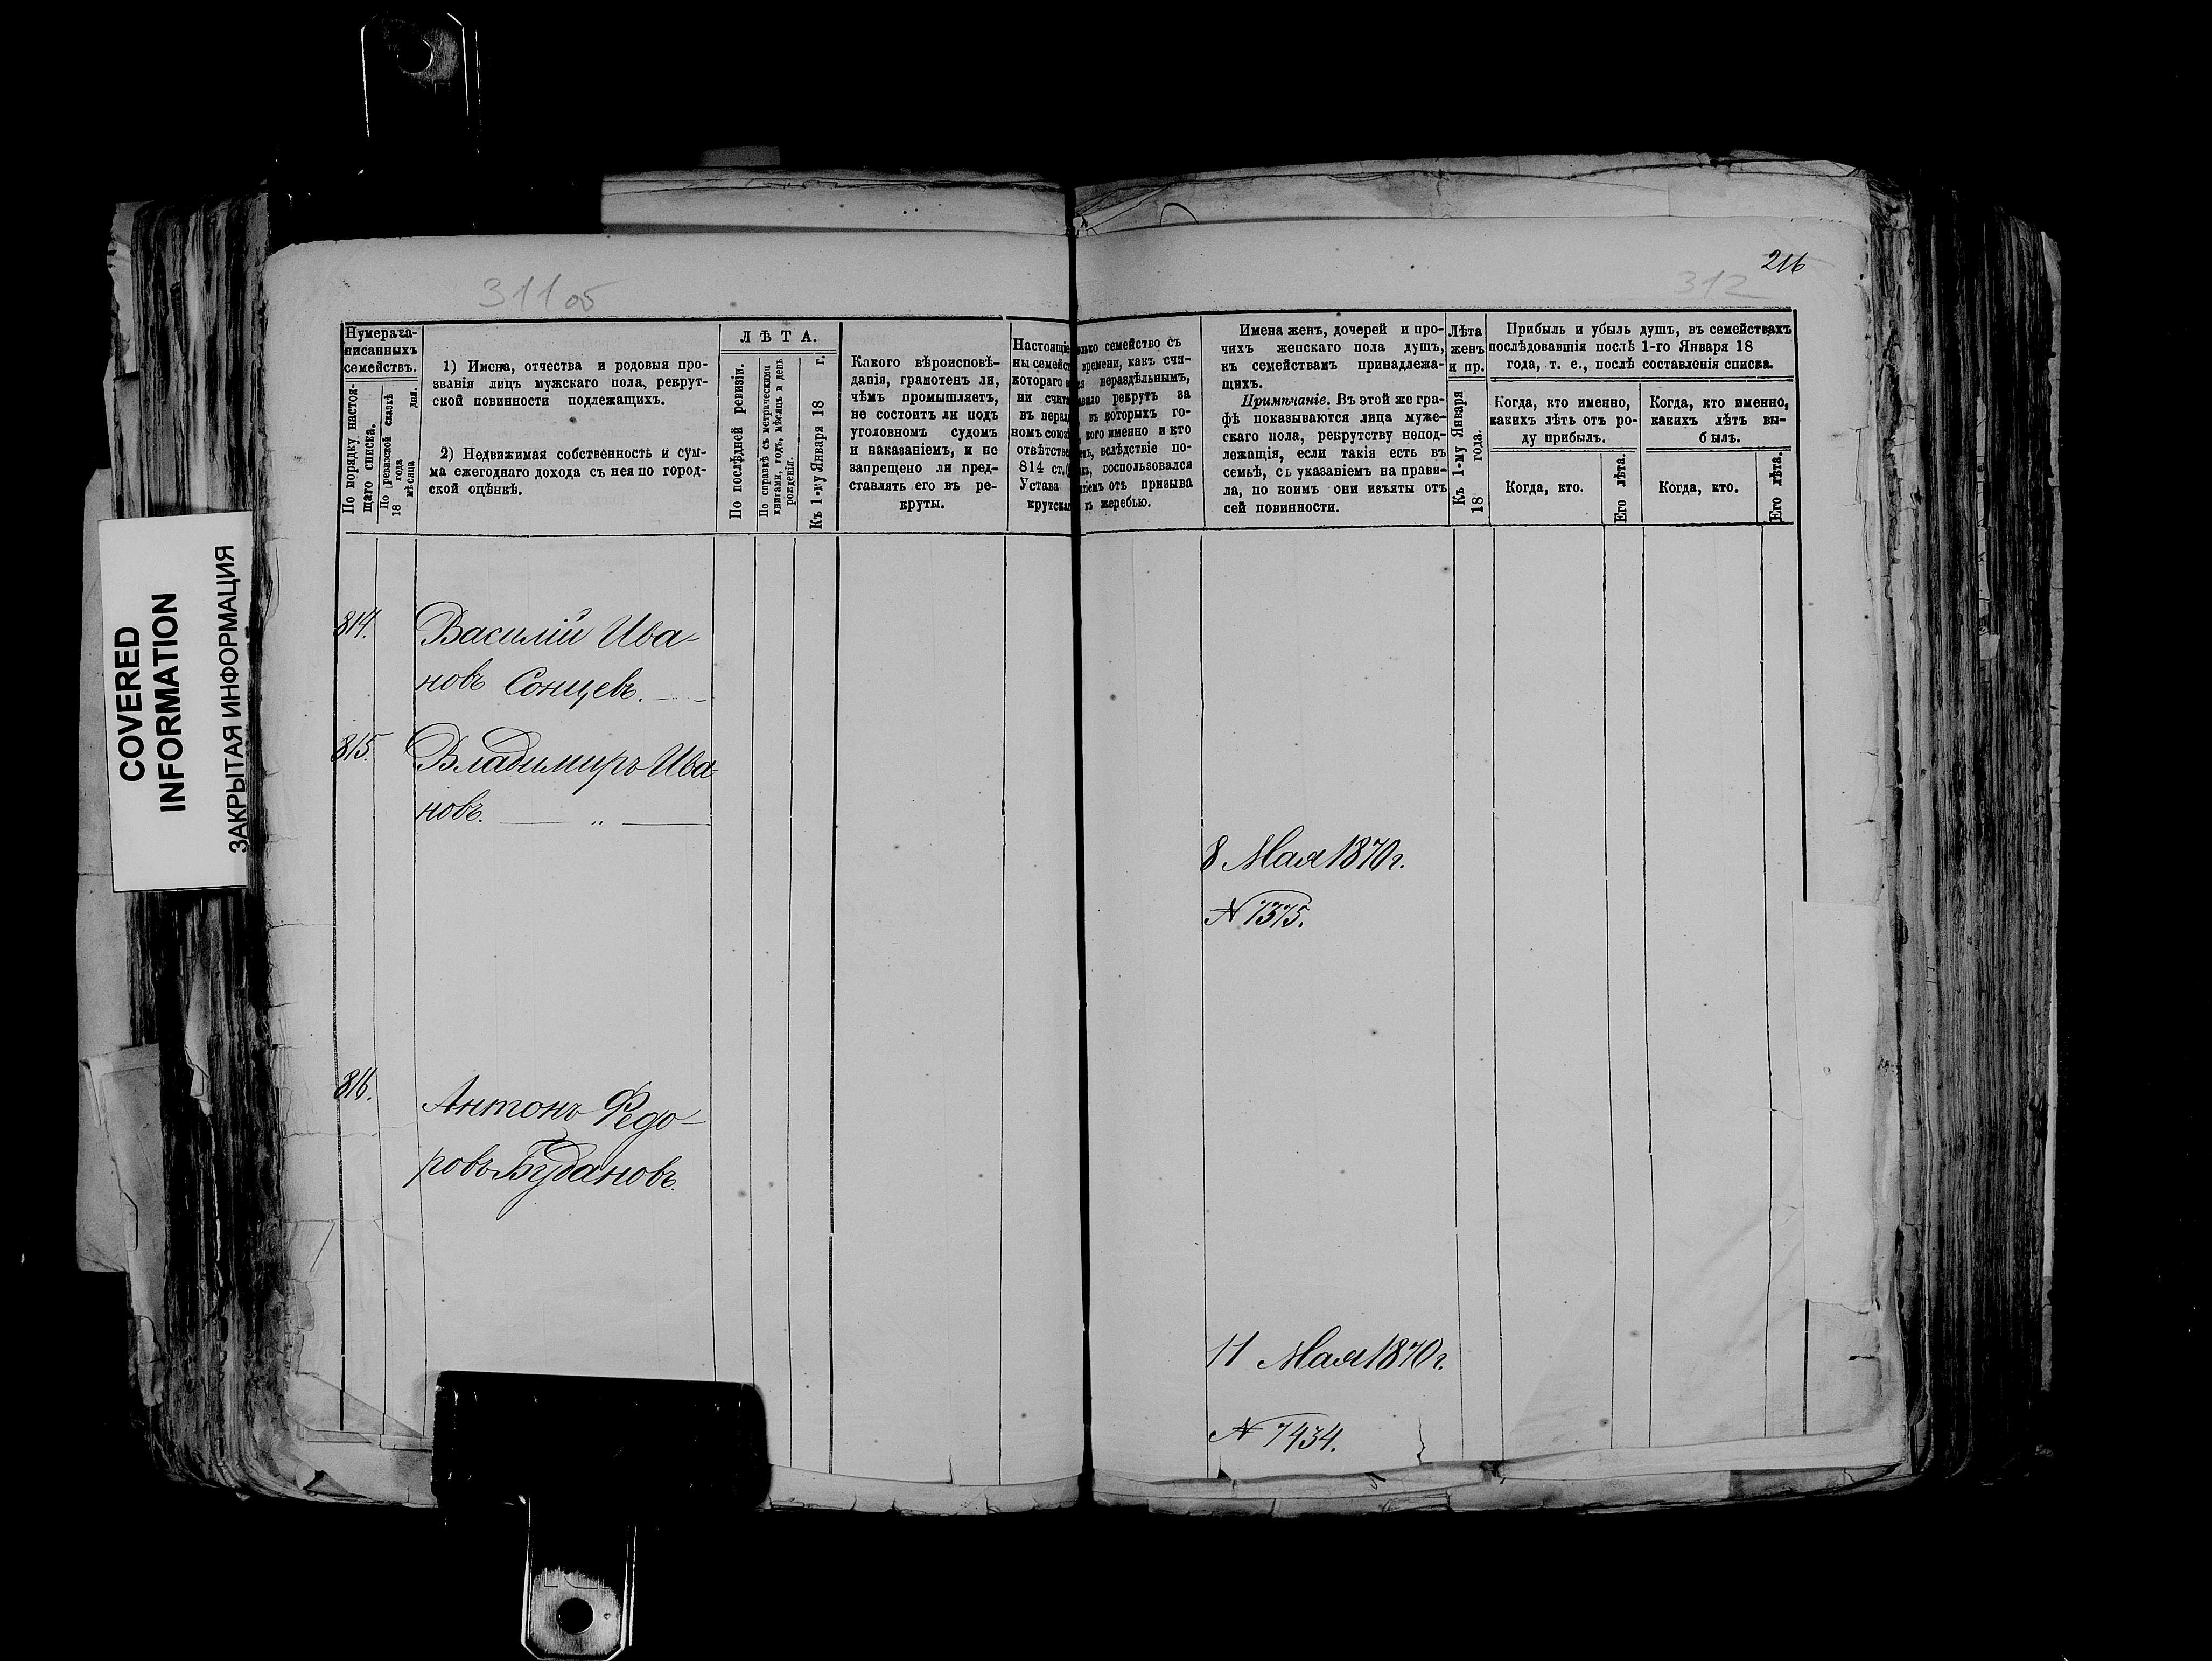 311об
216
312
COVERED
INFORMATION
ЗАКРЫТАЯ ИНФОРМАЦИЯ
Нумера за-
писанныхъ
семействъ.
По порядку настоя-
щаго списка.
По ревизской сказкѣ
18 года
мѣсяца дня.
1) Имена, отчества и родовыя про-
званія лицъ мужскаго пола, рекрут-
ской повинности подлежащихъ.
2) Недвижимая собственность и сум-
ма ежегоднаго дохода съ нея по город-
ской оцѣнкѣ.
ЛѢТА.
По послѣдней ревизіи.
По справкѣ съ метрическими
книгами, годъ, мѣсяцъ и день
рожденія.
Къ 1-му Января 18 г.
Какого вѣроисповѣ-
данія, грамотенъ ли,
чѣмъ промышляетъ,
не состоитъ ли подъ
уголовномъ судомъ
и наказаніемъ, и не
запрещено ли пред-
ставлять его въ ре-
круты.
Настоящіе
ны семейст
котораго
ни счита
въ нераз
номъ союз
отвѣтстве
814 ст.
Устава
крутска
олько семейство съ
времени, какъ счи-
ся нераздѣльнымъ,
авило рекрутъ за
въ которыхъ го-
кого именно и кто
вслѣдствіе по-
воспользовался
тіемъ отъ призыва
къ жеребью.
Имена женъ, дочерей и про-
чихъ женскаго пола душъ,
къ семействамъ принадлежа-
щихъ.
Примѣчаніе. Въ этой же гра-
фѣ показываются лица муже-
скаго пола, рекрутству непод-
лежащія, если такія есть въ
семьѣ, съ указаніемъ на прави-
ла, по коимъ они изъяты отъ
сей повинности.
Лѣта
женъ
и пр.
Къ 1-му Января
18 года.
Прибыль и убыль душъ, въ семействахъ
послѣдовавшія послѣ 1-го Января 18
года, т. е., послѣ составленія списка.
Когда, кто именно,
какихъ лѣтъ отъ ро-
ду прибылъ.
Когда, кто.
Его лѣта.
Когда, кто именно,
какихъ лѣтъ вы-
былъ.
Когда, кто.
Его лѣта.
814. Василій Ива-
новъ Сонцевъ.
815. Владимиръ Ива-
новъ. — „ —
8 Мая 1870 г.
N 7375.
816. Антонъ Федо-
ровъ Будановъ.
11 Мая 1870 г.
N 7434.